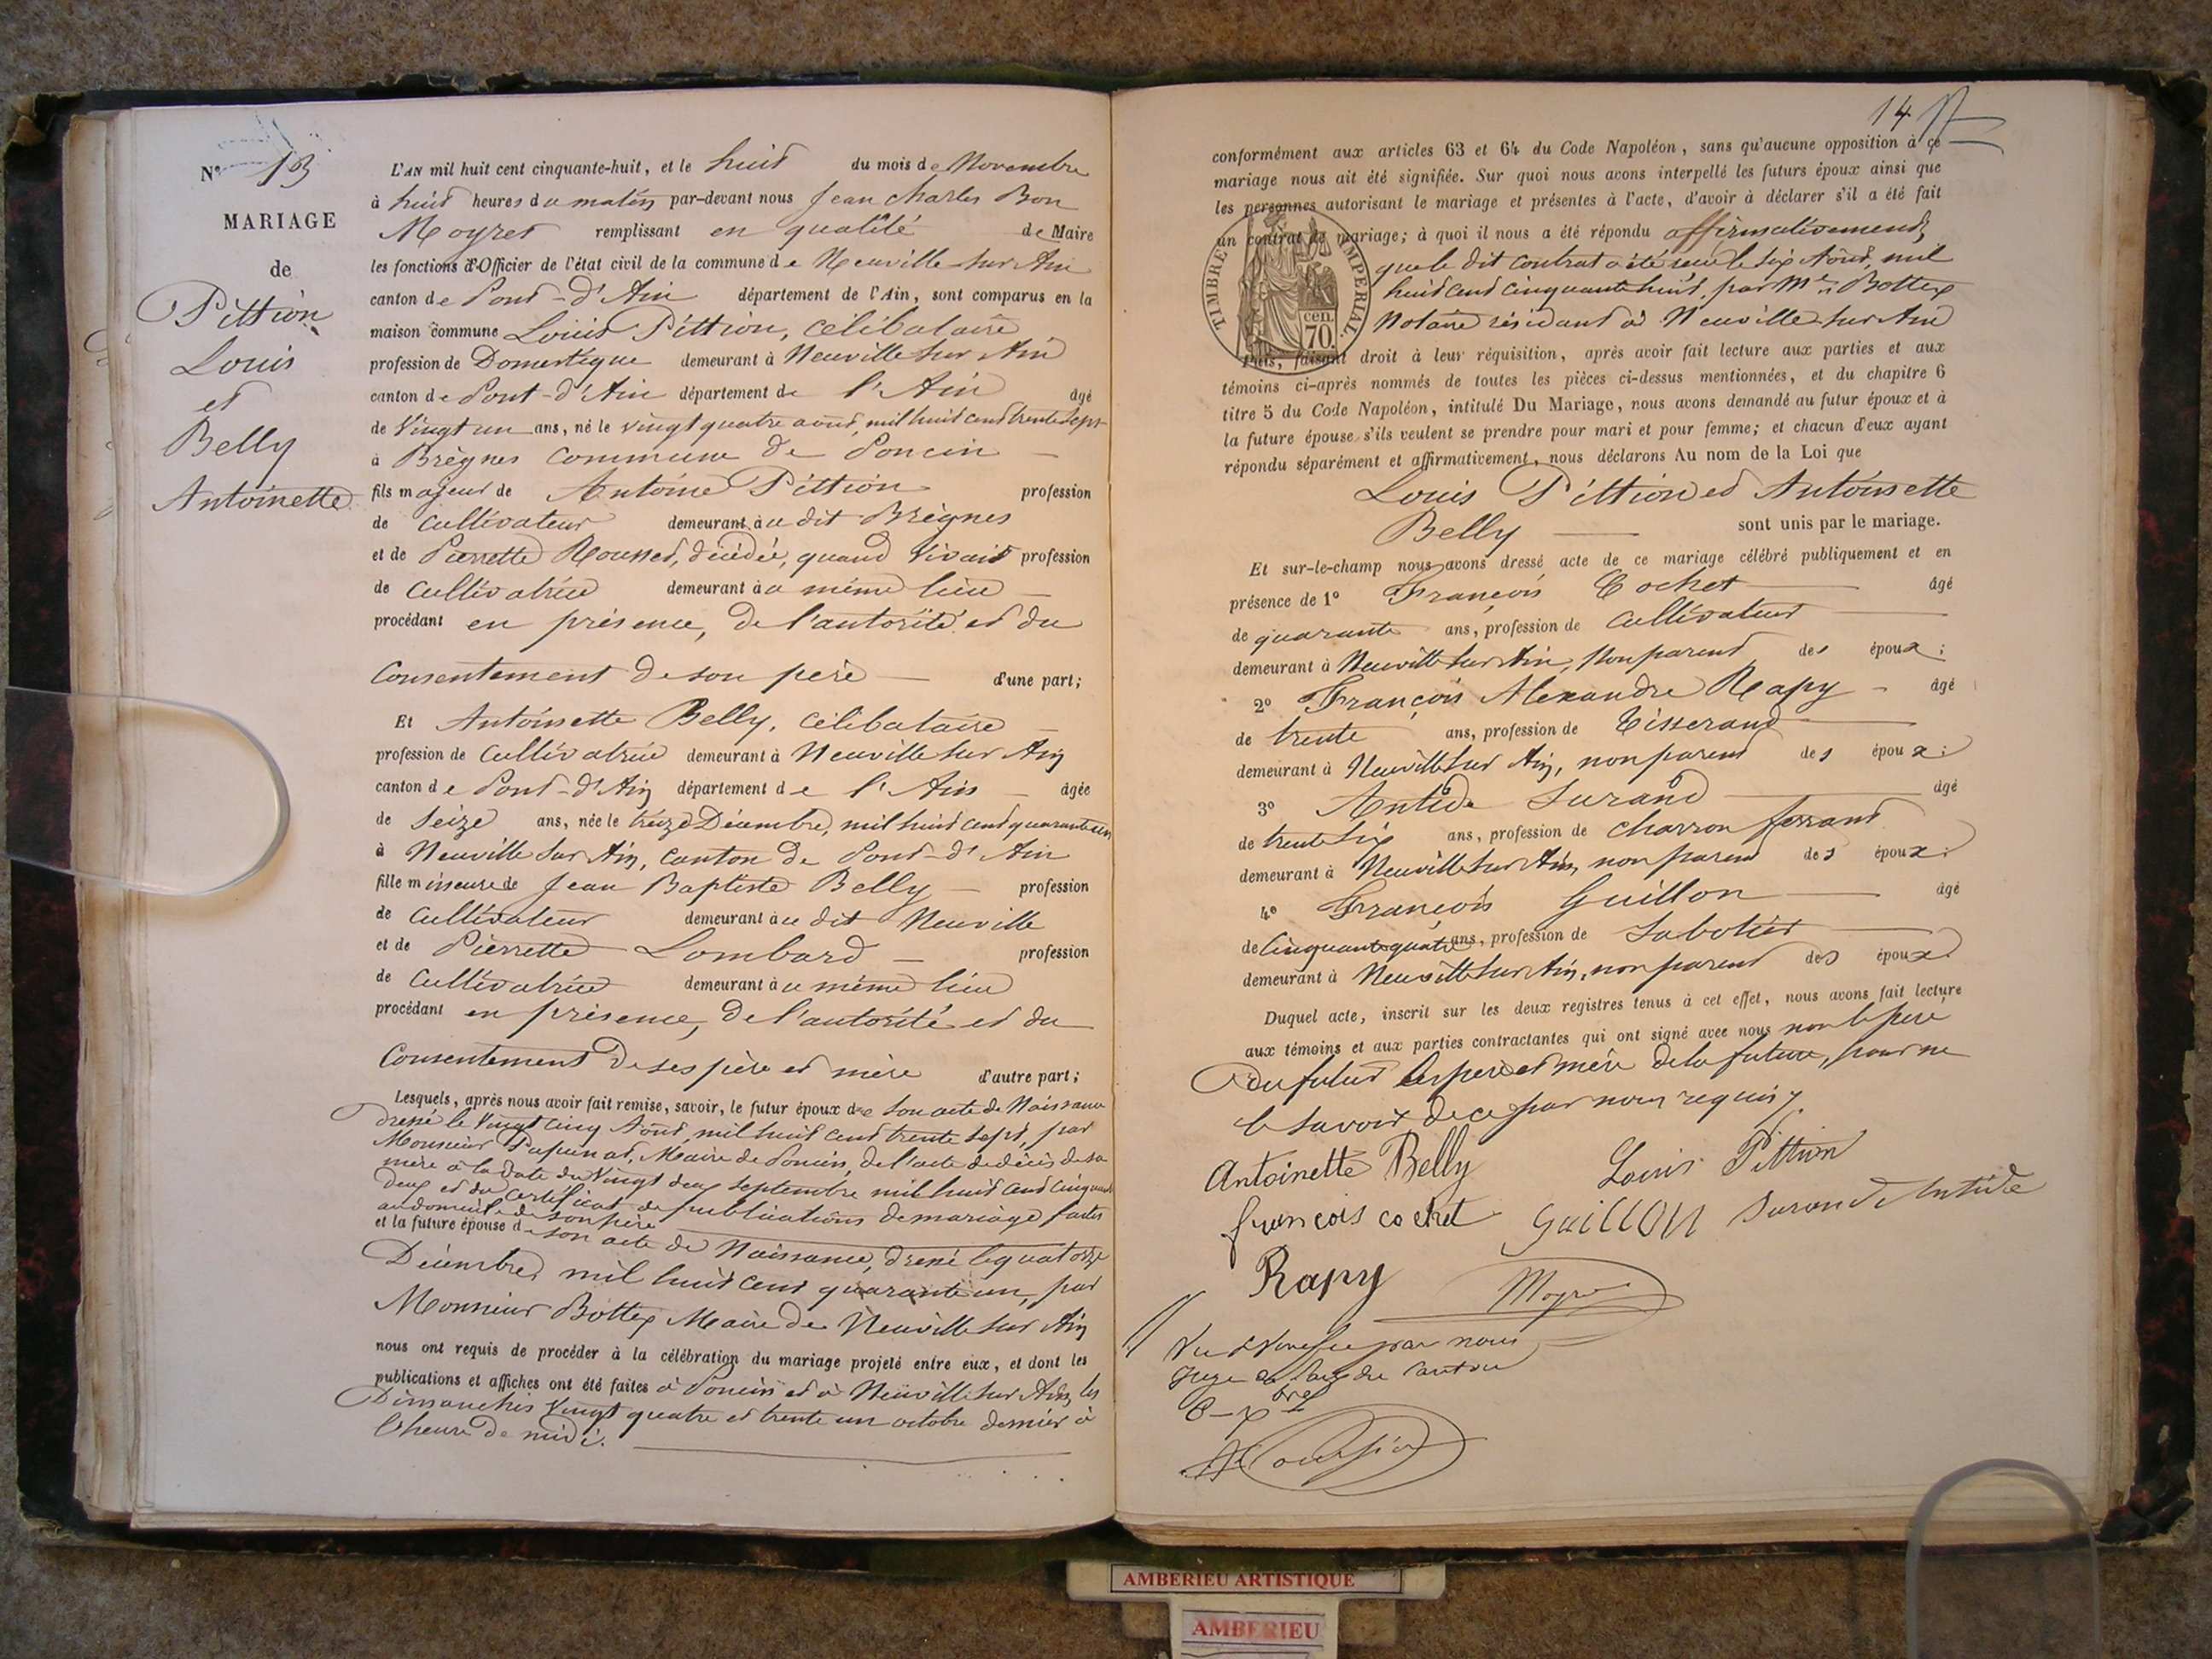 N° 13
MARIAGE
de
Pittion
Louis
et
Belly
Antoinette
L'AN mil huit cent cinquante-huit, et le huit du mois de Novembre
à huit heures du matin par-devant nous Jean Charles Bon
Moyret remplissant en qualité de Maire
les fonctions d'Officier de l'état civil de la commune de Neuville sur Ain
canton de Pont-d'Ain département de l'Ain, sont comparus en la
maison commune Louis Pittion, célibataire
profession de Domestique demeurant à Neuville sur Ain
canton de Pont-d'Ain département de l'Ain âgé
de Vingt un ans, né le vingt quatre août, mil huit cent trente sept
à Brègnes commune de Poncin
fils majeur de Antoine Pittion profession
de cultivateur demeurant au dit Brègnes
et de Pierrette Rousset, décédée, quand vivait profession
de cultivatrice demeurant au même lieu
procédant en présence, de l'autorité et du
Consentement de son père d'une part;
Et Antoinette Belly, célibataire
profession de cultivatrice demeurant à Neuville sur Ain
canton de Pont-d'Ain département de l'Ain âgée
de Seize ans, née le treize Décembre, mil huit cent quarante un
à Neuville sur Ain, canton de Pont-d'Ain
fille mineure de Jean Baptiste Belly profession
de cultivateur demeurant au dit Neuville
et de Pierrette Lombard profession
de cultivatrice demeurant au même lieu
procédant en présence, de l'autorité et du
Consentement de ses père et mère d'autre part;
Lesquels, après nous avoir fait remise, savoir, le futur époux de son acte de Naissance
dressé le Vingt cinq Août, mil huit cent trente sept, par
Monsieur Maire de Poncin, de l'acte de décès de sa
mère à la date du Vingt deux septembre mil huit cent cinquante
deux et du certificat de publications de mariage faites
au domicile de son père
et la future épouse de son acte de Naissance, dressé le quatorze
Décembre mil huit cent quarante un, par
Monsieur Bottex Maire de Neuville sur Ain
nous ont requis de procéder à la célébration du mariage projeté entre eux, et dont les
publications et affiches ont été faites à Poncin et à Neuville sur Ain, les
Dimanches Vingt quatre et trente un octobre dernier à
l'heure de midi.
14
conformément aux articles 63 et 64 du Code Napoléon, sans qu'aucune opposition à ce
mariage nous ait été signifiée. Sur quoi nous avons interpellé les futurs époux ainsi que
les personnes autorisant le mariage et présentes à l'acte, d'avoir à déclarer s'il a été fait
un contrat de mariage; à quoi il nous a été répondu affirmativement,
que le dit contrat a été reçu le six Août, mil
huit cent cinquante huit, par Me Bottex
Notaire résidant à Neuville sur Ain
TIMBRE IMPERIAL
cen.
70.
Puis, faisant droit à leur réquisition, après avoir fait lecture aux parties et aux
témoins ci-après nommés de toutes les pièces ci-dessus mentionnées, et du chapitre 6
titre 5 du Code Napoléon, intitulé Du Mariage, nous avons demandé au futur époux et à
la future épouse s'ils veulent se prendre pour mari et pour femme; et chacun d'eux ayant
répondu séparément et affirmativement, nous déclarons Au nom de la Loi que
Louis Pittion et Antoinette
Belly sont unis par le mariage.
Et sur-le-champ nous avons dressé acte de ce mariage célébré publiquement et en
présence de 1° François Cochet âgé
de quarante ans, profession de Cultivateur
demeurant à Neuville sur Ain, non parent des époux;
2° François Alexandre Rapy âgé
de trente ans, profession de Tisserand
demeurant à Neuville sur Ain, non parent des époux;
3° Antide Surand âgé
de trente six ans, profession de charron ferrant
demeurant à Neuville sur Ain, non parent des époux;
4° François Guillon âgé
de Cinquante quatre ans, profession de Sabotier
demeurant à Neuville sur Ain, non parent des époux.
Duquel acte, inscrit sur les deux registres tenus à cet effet, nous avons fait lecture
aux témoins et aux parties contractantes qui ont signé avec nous non le père
du futur les père et mère de la future, pour ne
le savoir de ce par nous requis
Antoinette Belly Louis Pittion
françois cochet GuiLLON Surand Antide
Rapy Moyret
Vu & Vérifié par nous
Juge de Paix du Canton
AMBERIEU ARTISTIQUE
AMBERIEU